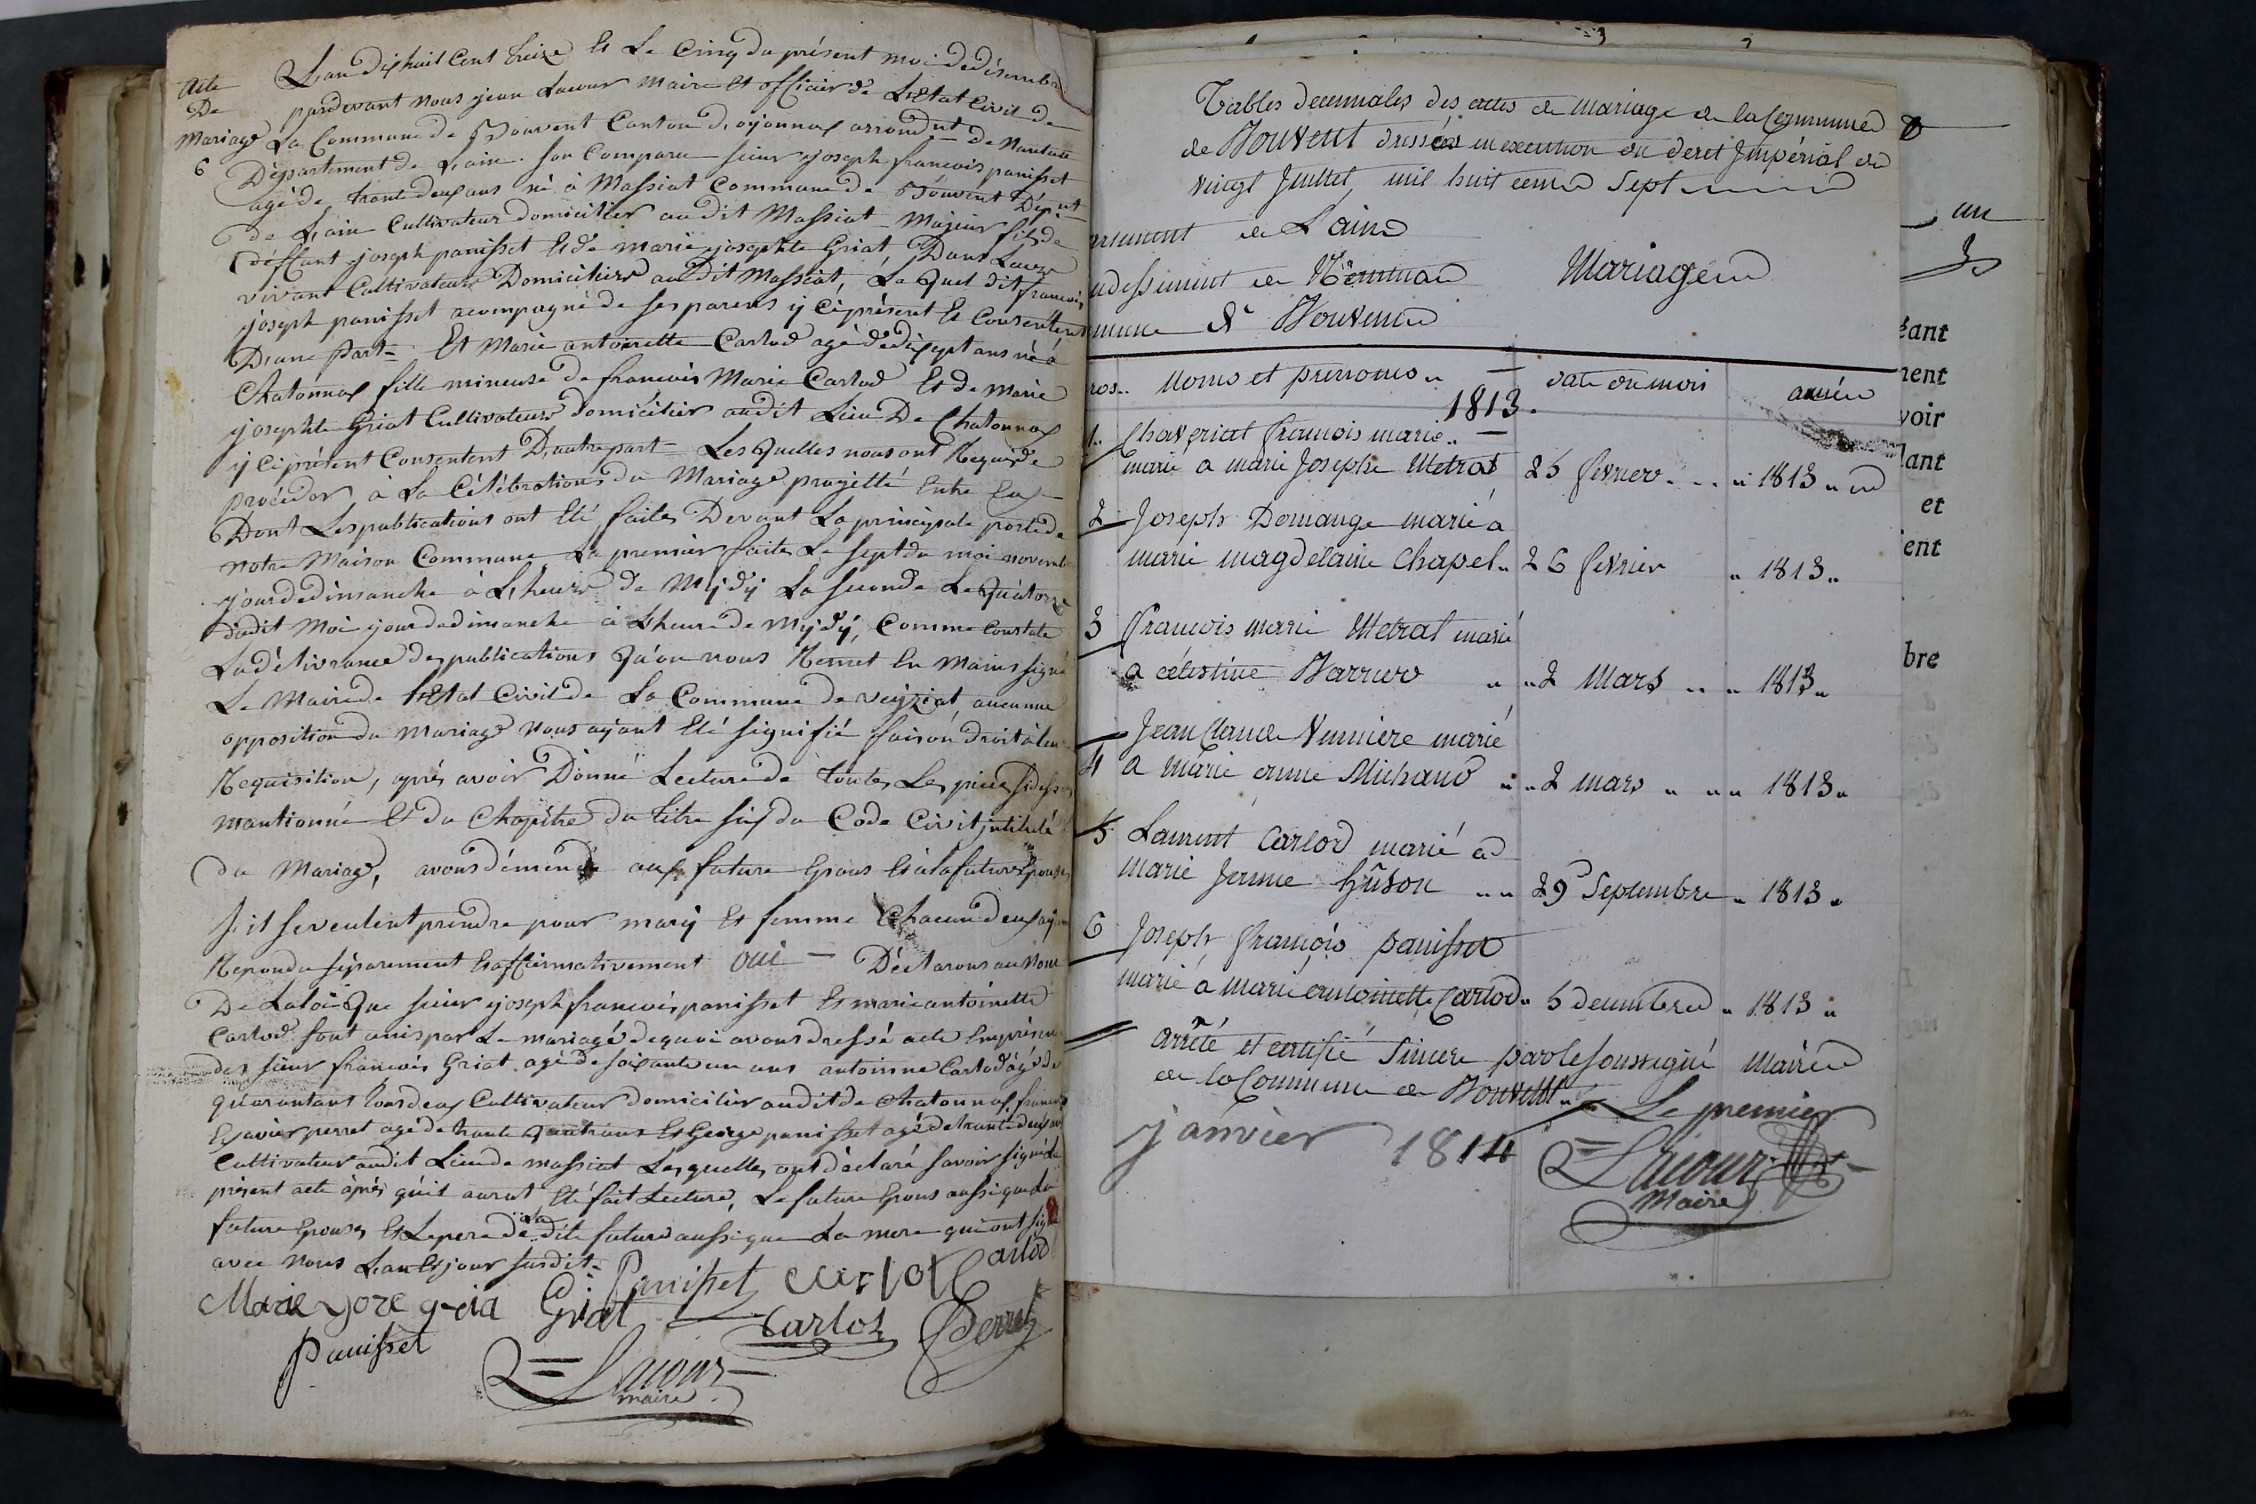 Acte
De
Mariage
6
L'an dix huit Cent treize Et Le Cinq du présent moi de désembre
pardevant nous jean Lacour Maire Et officier de L'Etat Civil de
La Commune de Bouvent Canton d'oyonnax arrondnt de Nantua
Département de Laine. son Comparu sieur joseph francois panisset
agé de trante deux ans né à Massiat Commune de Bouvent Dépnt
de Laine Cultivateur domicilier au dit Massiat Majeur fils de
joseph panisset Et de marie josephte Griat, Dans Leurs
vivant Cultivateurs Domiciliers au dit Massiat, Le quel dit francois
joseph panisset acompagné de ses parens y ci présent Et Consentent
D'une Part = Et Marie antoinette Carlod agé de dix sept ans né à
Chatonnax fille mineuse de francois Marie Carlod Et de Marie
josephte Griat Cultivateurs domicilier audit Lieu De Chatonnax
y ci présent Consentent D'autre part = Les quelles nous ont Requis de
procéder à La Célébrations du Mariage progetté Entre Eux
Dont Les publications ont Eté faites Devant La principale porte de
notre Maison Commune La premier faite Le sept du moi novembre
jour de dimanche à L'heure de Mydy La seconde Le quatorze
dudit Moi jour de dimanche à L'heure de Mydy, Comme Constate
La délivrance des publications qu'on nous Remet En Mains signé
Le Maire de L'Etat Civil de La Commune de veyziat, aucunne
opposition du Mariage Nous ayant Eté signifié faison droit à leur
Requisition, après avoir Donné Lecture de toutes Les pieces sidessus
mantionné Et du Chapitre du titre six du Code Civil intitulé
du Mariage, avons démendé aux future Epous Et à la future Epouse
s'il se veulent prendre pour mary Et femme Chacun d'eux ayant
Repondu séparement Et affirmativement oui — Déclarons au Nom
De La loi Que sieur joseph francois panisset Et marie antoinette
Carlod sont unis par Le mariage de quoi avons dressé acte En présence
des sieur francois Griat agé de soixante un ans antoinne Carlod agé de
quarantans tous deux Cultivateur domicilier audit de Chatonnax francois
Exavier perret agé de trante quatrans Et George panisset agé de trante deux ans
Cultivateur audit Lieu de massiat Lesquelles ont déclaré savoir signé Le
présent acte après qu'il aurat Eté fait Lecture, Le future Epous aussi que La
future Epouse, Et Le pere de la dite future aussi que La mere qui ont signé
avec Nous L'an Et jour susdit =
Panisset Carlot Carlod
Marie joze gria Griat Carlod Perret
Panisset
Lacour
maire
Tables decennales des actes de mariage de la Commune
de Bouvent dressées en execution du decret Impérial du
vingt Juillet mil huit cent Sept
artement de L'ain
ndissement de Nantua Mariage
mune de Bouvent
ros.. Noms et prenoms.. date du mois année
1813.
1.. Chaveriat françois marie..
marié a marie Josephe Metrat 25 fevrier 1813
2 Joseph Domange marié a
marie magdelaine Chapel 26 fevrier 1813
3 François marie Metrat marié
a célestine Barrier 2 Mars 1813
Jean Claude Vunniere marié
4 a Marie anne Michaud 2 mars 1813
5 Laurent Carlod marié a
marie Jeanne Huson 29 Septembre 1813
6 Joseph françois panisset
marié a marie antoinette Carlod 5 decembre 1813
Arrêté et certifié Sincere par le soussigné Maire
de la Commune de Bouvent Le premier
janvier 1814
Lacour
Maire
au
éant
nent
voir
lant
et
ient
bre